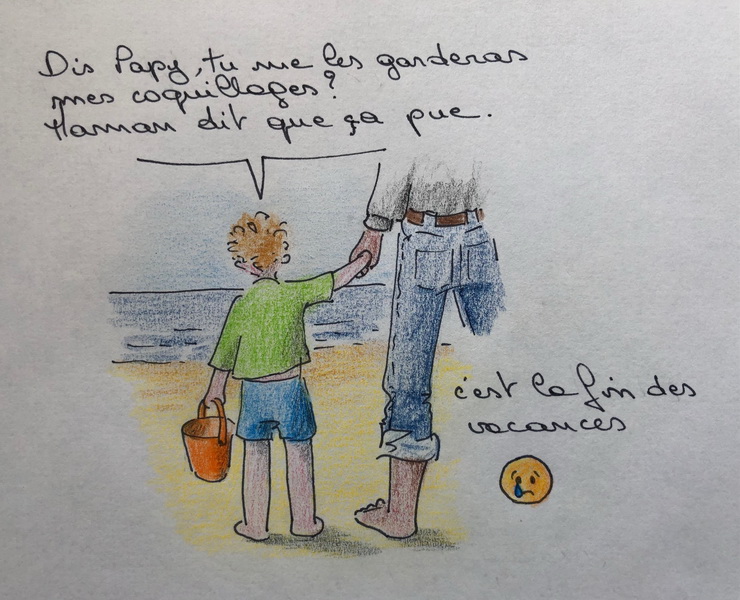 Dis Papy, tu me les garderas
mes coquillages?
Maman dit que ça pue.
c'est la fin des
vacances